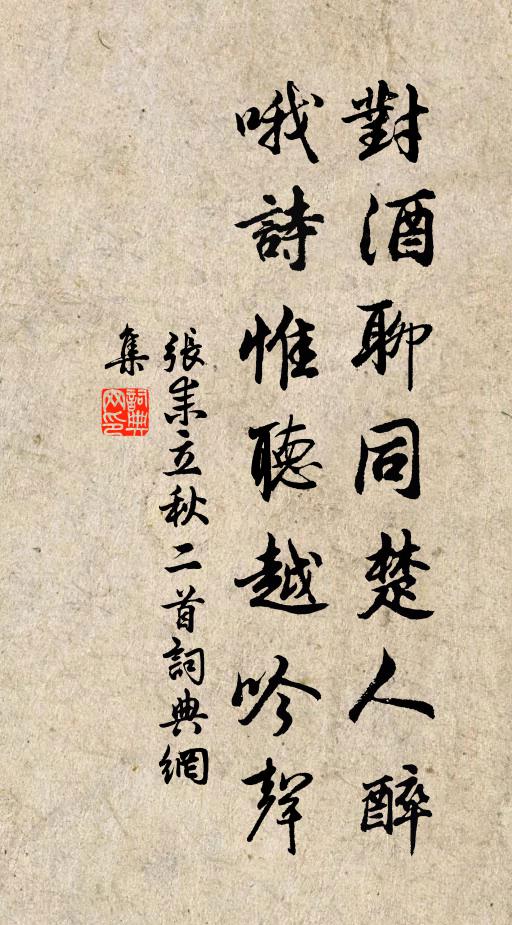 對酒聊同楚人醉
哦詩惟聽越吟聲
張耒立秋二首詞典網
集
詞典网印